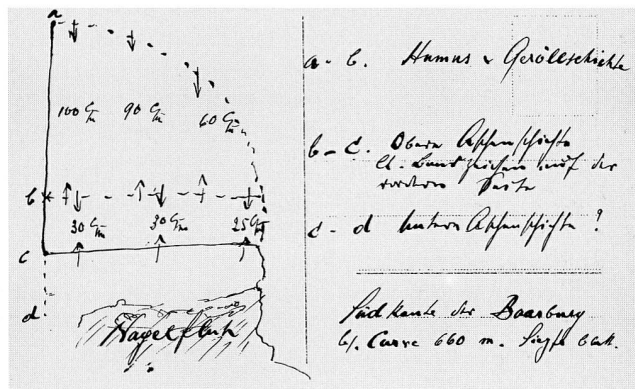 a
100 Cm 90 Cm 60 Cm
b
30 Cm 30 Cm 25 Cm
c
d
Nagelfluh
a - b. Humus & Geröllschichte
b - c. Obere Aschenschichte
lt. auf der
vordern Seite
c - d Untere Aschenschichte ?
Südkante der Baarburg
bei Curve 660 m. Siegfr. blatt.